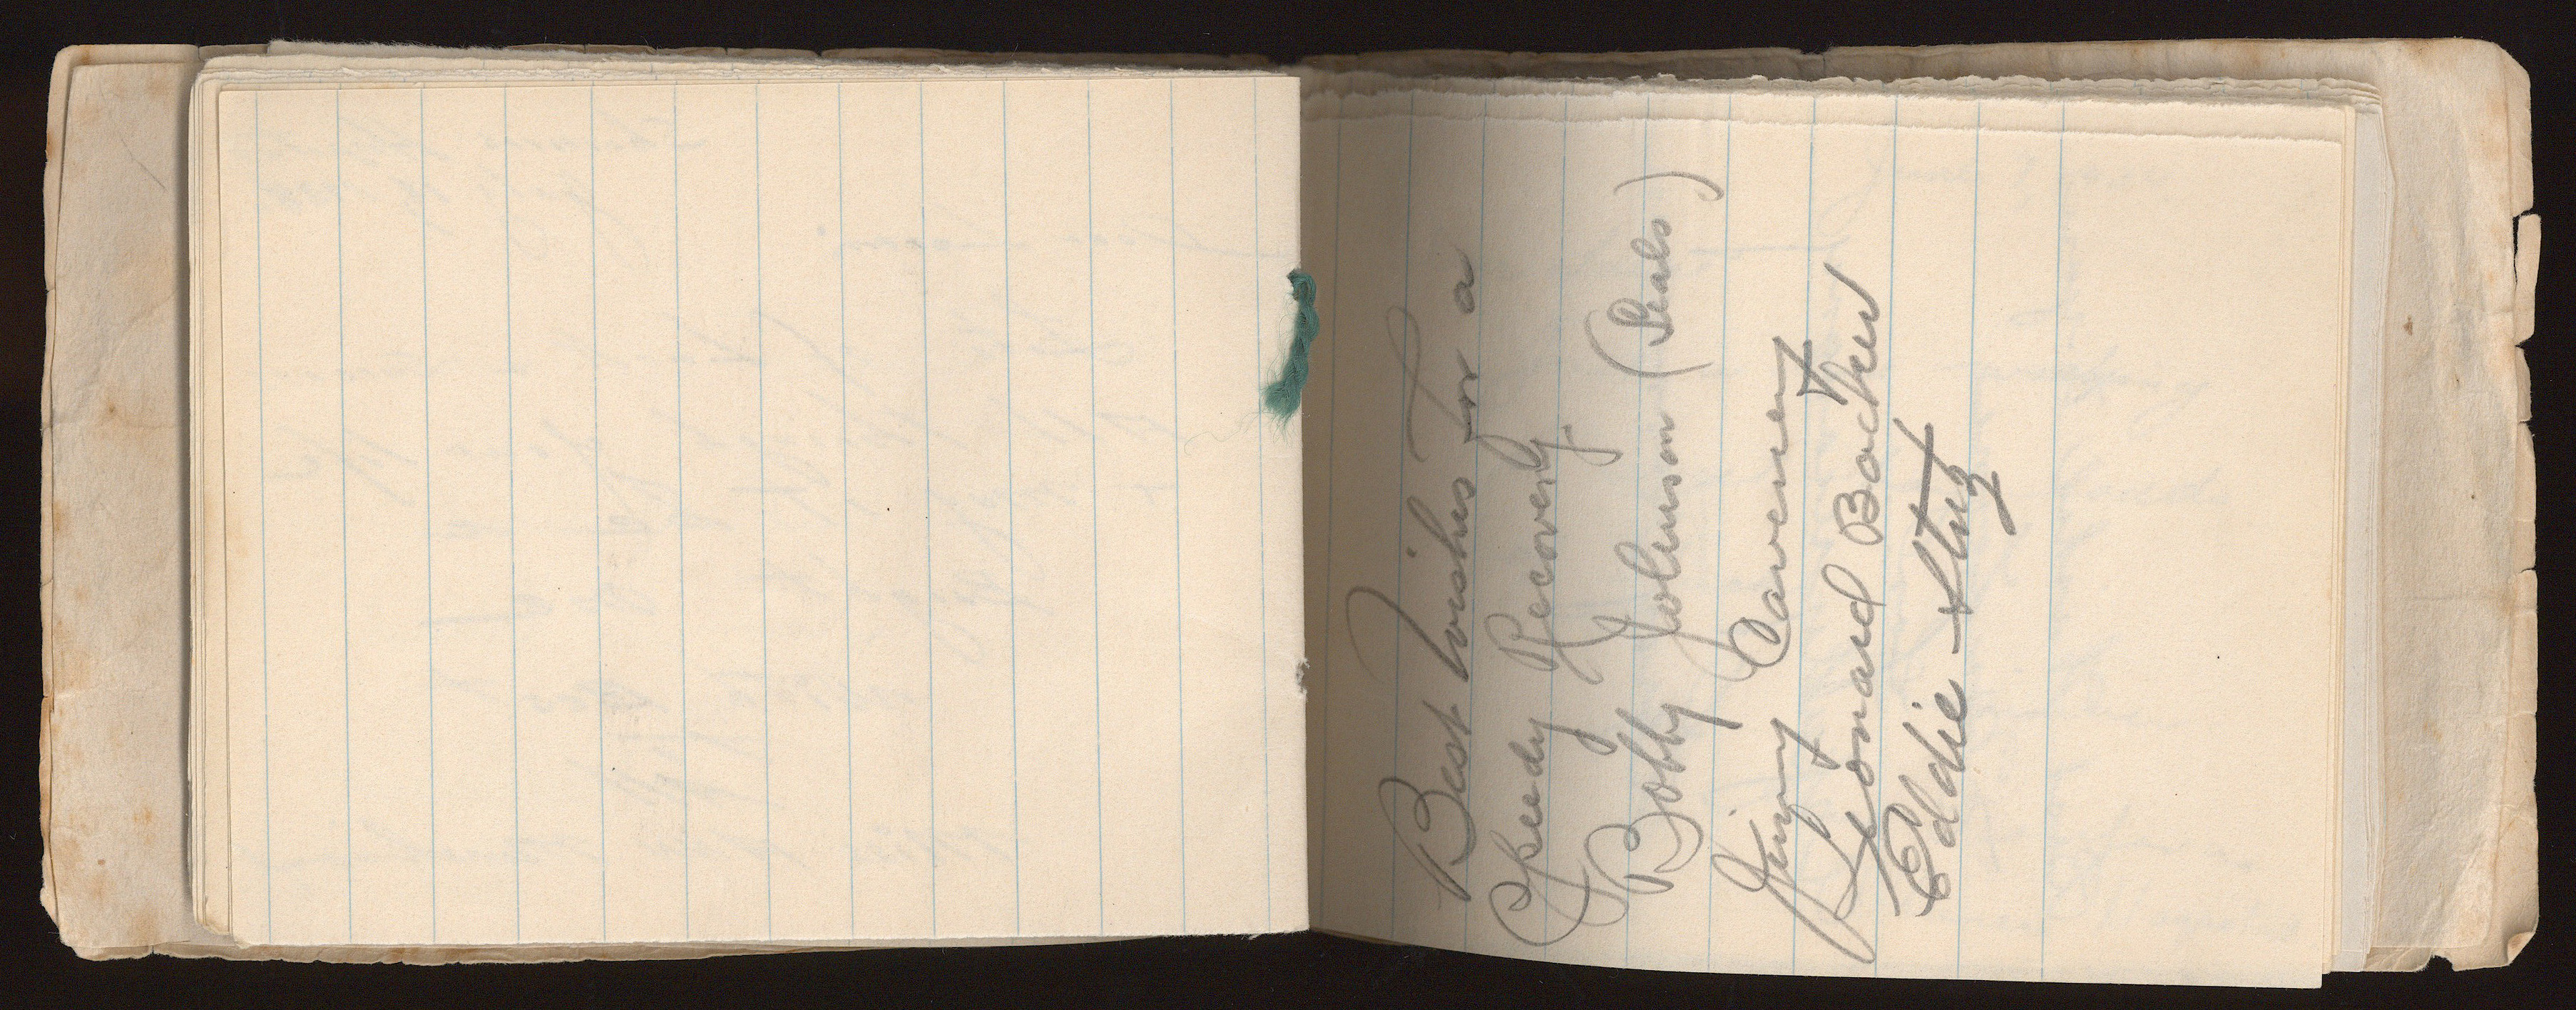 Best Wishes For a
Speedy Recovery.
Bobby Johnson (Seals)
Jimmy Caveney
Leonard Backer
Eddie Stutz